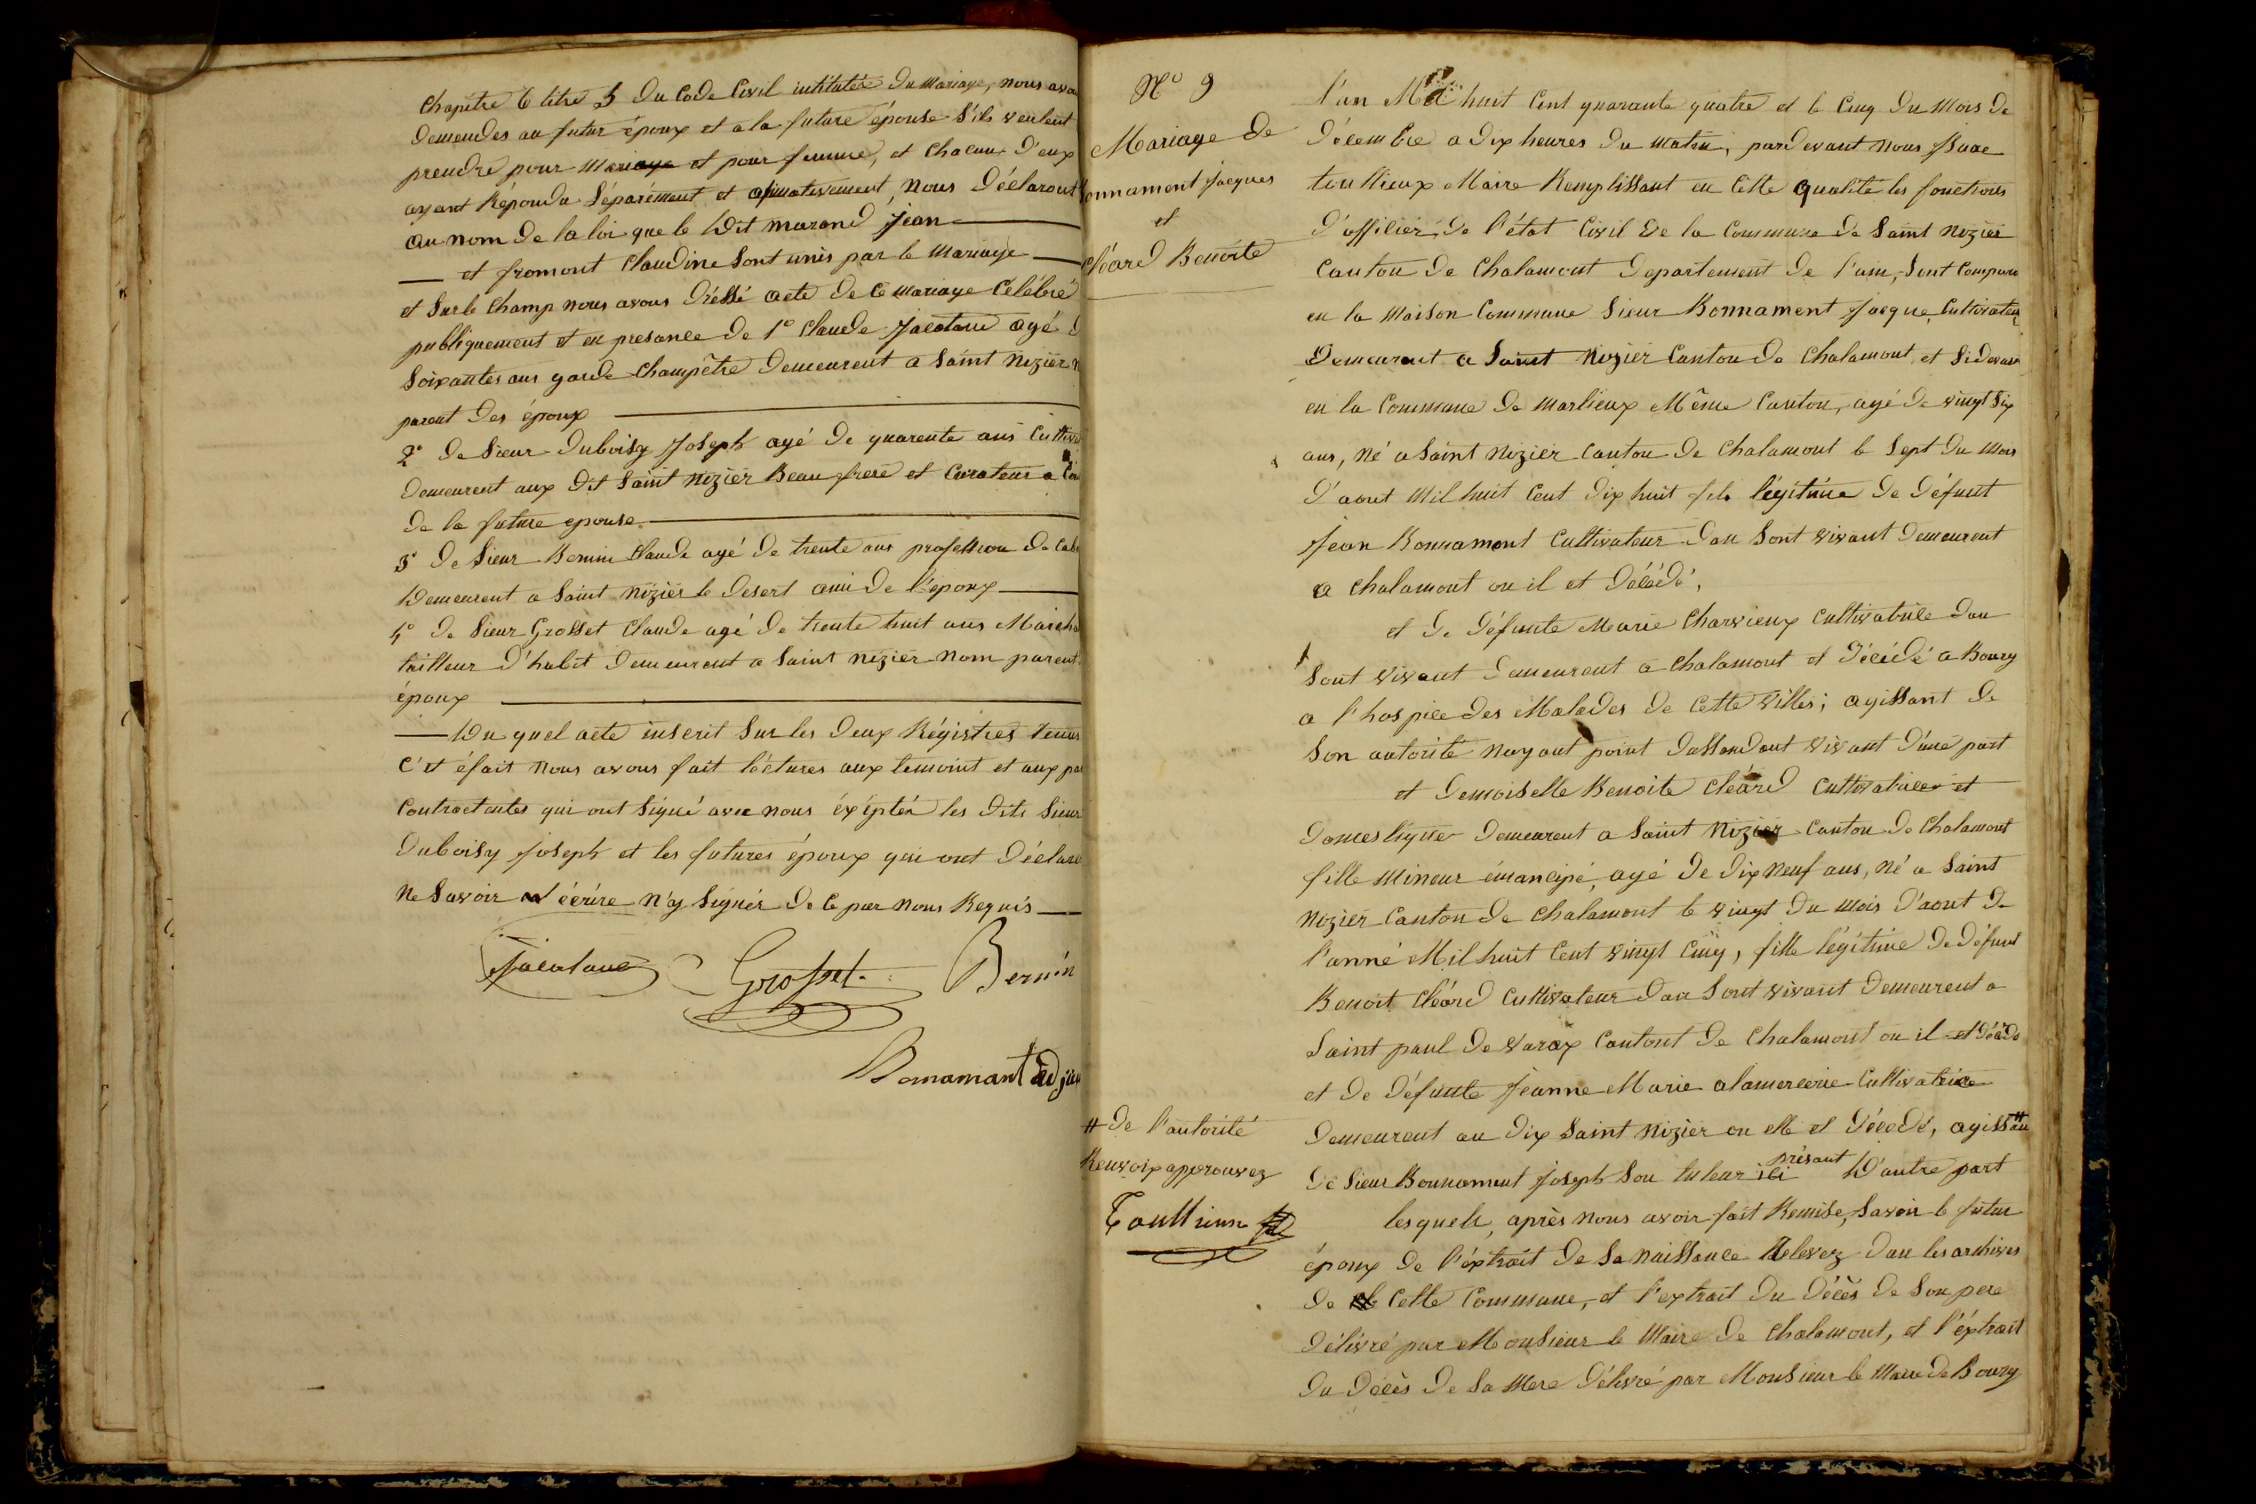 Chapitre 6 titre 5 du Code Civil intitulée du mariage, nous avo
demendes au futur époux et a la future épouse s'ils veulent
prendre pour mariage et pour femme, et chacun d'eux
ayant Réponda Séparément et afimativement, nous déclarons
au nom de la loi que le dit marand Jean
et fromont Claudine sont unis par le mariage
et sur le champ nous avons dréssé acte de ce mariage célébré
publiquement et en presance de 1° Claude Jacotane agé d
soixantes ans garde champêtre demeurent a Saint Nizier n
parent des époux
2° de Sieur Duboisy Joseph agé de quarente ans Cultiva
demeurent aux dit Saint Nizier Beau frere et Curateur a
de la future epouse
3° de Sieur Bernin Claude agé de trente ans profession de
demeurent a Saint Nizier le desert ami de l'époux
4° de Sieur Grosset Claude agé de trente huit ans Marcha
tailleur d'habit demeurent a Saint Nizier nom parent
époux
du quel acte inscrit sur les deux Régistres tenus
C'et éfait nous avons fait léctures aux temoint et aux pa
contractantes qui ont signé avec nous éxépter les dits Sieur
Duboisy Joseph et les futures époux qui ont déclaré
ne savoir écrire n'y signér de ce par nous Requis
Jacotane Grosset Bernin
Bonamant adjoin
N° 9
Mariage de
onnament Jacques
et
Cléard Benoite
l'an Mil huit Cent quarante quatre et le Cinq du mois de
décembre a dix heures du matin, pardevant nous Isaac
toullieux Maire Remplissant en cette qualité les fonctions
d'officiér de l'état Civil de la Commune de Saint Nizier
Canton de Chalamont département de l'ain, sont Comparu
en la maison Commune Sieur Bonnament Jacque Cultivateur
demeurant a Saint Nizier Canton de Chalamont et sidevant
en la Commune de Marlieux Même Canton, agé de vingt six
ans, né a Saint Nizier Canton de Chalamont le sept du mois
d'aout Mil huit Cent dix huit fils légitime de défunt
Jean Bonnamont Cultivateur dan sont vivant demeurent
a Chalamont ou il et décédé,
et de défunte Marie Charvieux Cultivatrice dan
sont vivant demeurent a Chalamont et décédé a Bourg
a l'hospice des Malades de cette villes; agissant de
son autorité nayant point dassendant vivant d'une part
et demoiselle Benoite Cléard Cultivatrice et
domestique demeurent a Saint Nizier Canton de Chalamont
fille mineur émancipé, agé de dix neuf ans, né a Saint
Nizier Canton de Chalamont le vingt du mois d'aout de
l'anné Mil huit Cent vingt Cinq, fille légitime de défunt
Benoit Cléard Cultivateur dan sont vivant demeurent a
Saint paul de varax Cantont de Chalamont ou il et décédé
et de défunte Jeanne Marie alamercerie Cultivatrice
demeurent au dix Saint Nizier ou elle et décédé, agissan #
de Sieur Bonnament Joseph son tuteur ici présant d'autre part
# de l'autorité
Renvoix approuvez
Toullieux
lesquels, après nous avoir fait Remise, savoir le futur
époux de l'éxtrait de sa naissance Relevez dan les archives
de cette Commune, et l'extrait du décès de son pere
délivré par Monsieur le Maire de Chalamont, et l'éxtrait
du décès de sa mere délivré par Monsieur le Maire de Bourg